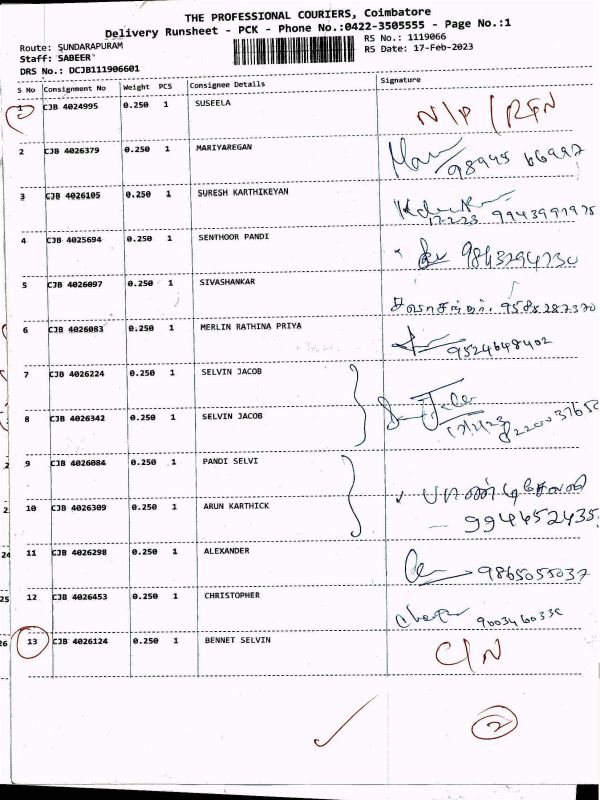 THE PROFESSIONAL COURIERS, Coimbatore
Delivery Runsheet - PCK - Phone No.:0422-3505555 - Page No.:1
Route: SUNDARAPURAM
RS No.: 1119066
Staff: SABEER
RS Date: 17-Feb-2023
DRS No.: DCJB111906601
S No Consignment No Weight PCS Consignee Details Signature
1 CJB 4024995 0.250 1 SUSEELA N/P / RFN
2 CJB 4026379 0.250 1 MARIYAREGAN
3 CJB 4026105 0.250 1 SURESH KARTHIKEYAN
17-2-23
4 CJB 4025694 0.250 1 SENTHOOR PANDI 9863294730
5 CJB 4026097 0.250 1 SIVASHANKAR
6 CJB 4026083 0.250 1 MERLIN RATHINA PRIYA 9524648402
7 CJB 4026224 0.250 1 SELVIN JACOB
8 CJB 4026342 0.250 1 SELVIN JACOB
9 CJB 4026084 0.250 1 PANDI SELVI
10 CJB 4026309 0.250 1 ARUN KARTHICK பாண்டிசெல்வி
9944524353
11 CJB 4026298 0.250 1 ALEXANDER 9865055037
12 CJB 4026453 0.250 1 CHRISTOPHER
13 CJB 4026124 0.250 1 BENNET SELVIN C/N
2